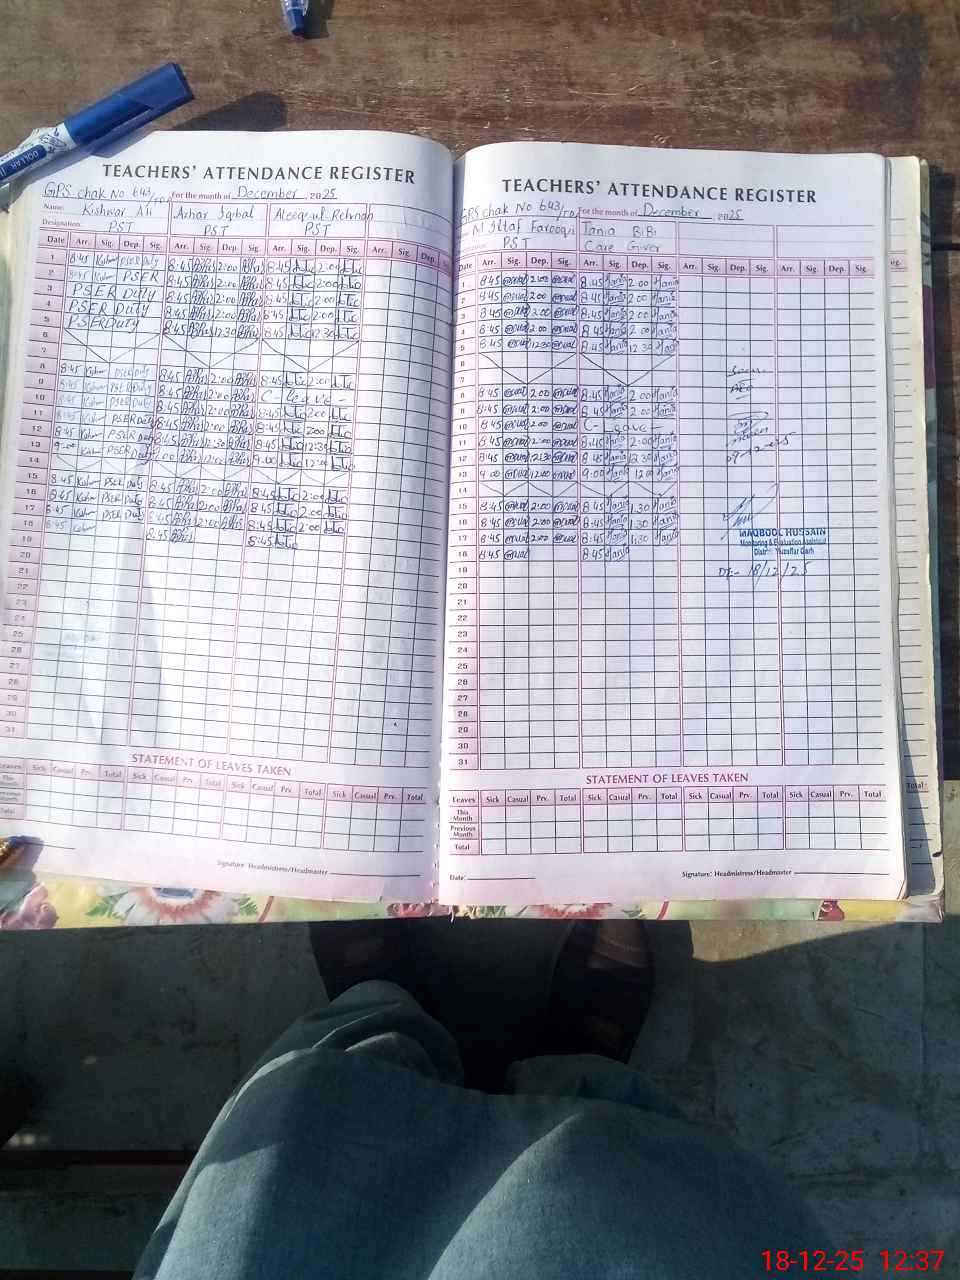 DOLLAR
TEACHERS' ATTENDANCE REGISTER
GPS chak No 643/TDA For the month of December 2025
Name: Kishwar Ali Azhar Iqbal Ateeq ul Rehman
Designation: PST PST PST
Date Arr. Sig. Dep. Sig. Arr. Sig. Dep. Sig. Arr. Sig. Dep. Sig. Arr. Sig. Dep. Sig.
1 8:45 PSER Duty 8:45 2:00 8:45 2:00
2 8:45 PSER 8:45 2:00 8:45 2:00
3 PSER Duty 8:45 2:00 8:45 2:00
4 PSER Duty 8:45 2:00 8:45 2:00
5 PSER Duty 8:45 12:30 8:45 12:30
6
7
8 8:45 PSER Duty 8:45 2:00 8:45 2:00
9 8:45 PSER Duty 8:45 2:00 C-leave-
10 8:45 PSER Duty 8:45 2:00 8:45 2:00
11 8:45 PSER Duty 8:45 2:00 8:45 2:00
12 8:45 PSER Duty 8:45 12:30 8:45 12:30
13 9:00 PSER Duty 9:00 12:00 9:00 12:00
14
15 8:45 PSER Duty 8:45 2:00 8:45 2:00
16 8:45 PSER Duty 8:45 2:00 8:45 2:00
17 8:45 PSER Duty 8:45 2:00 8:45 2:00
18 8:45 8:45 8:45
19
20
21
22
23
24
25
26
27
28
29
30
31
STATEMENT OF LEAVES TAKEN
Leaves Sick Casual Prv. Total Sick Casual Prv. Total Sick Casual Prv. Total Sick Casual Prv. Total
This Month
Previous Month
Total
Signature: Headmistress/Headmaster
TEACHERS' ATTENDANCE REGISTER
GPS chak No 643/TDA For the month of December, 2025
M Iltaf Farooqi Tania BiBi
PST Care Giver
Date Arr. Sig. Dep. Sig. Arr. Sig. Dep. Sig. Arr. Sig. Dep. Sig. Arr. Sig. Dep. Sig.
1 8:45 2:00 8:45 Tania 2:00 Tania
2 8:45 2:00 8:45 Tania 2:00 Tania
3 8:45 2:00 8:45 Tania 2:00 Tania
4 8:45 2:00 8:45 Tania 2:00 Tania
5 8:45 12:30 8:45 Tania 12:30 Tania
6
7
8 8:45 2:00 8:45 Tania 2:00 Tania
9 8:45 2:00 8:45 Tania 2:00 Tania
10 8:45 2:00 C-Leave-
11 8:45 2:00 8:45 Tania 2:00 Tania
12 8:45 12:30 8:45 Tania 12:30 Tania
13 9:00 12:00 9:00 Tania 12:00 Tania
14
15 8:45 2:00 8:45 Tania 1:30 Tania
16 8:45 2:00 8:45 Tania 1:30 Tania
17 8:45 2:00 8:45 Tania 1:30 Tania
18 8:45 8:45 Tania
19
20
21
22
23
24
25
26
27
28
29
30
31
AEO
09-12-2025
MAQBOOL HUSSAIN
Monitoring & Evaluation Assistant
District Muzaffar Garh
DT:- 18/12/25
STATEMENT OF LEAVES TAKEN
Leaves Sick Casual Prv. Total Sick Casual Prv. Total Sick Casual Prv. Total Sick Casual Prv. Total
This Month
Previous Month
Total
Date: Signature: Headmistress/Headmaster
Sig.
Total
18-12-25 12:37